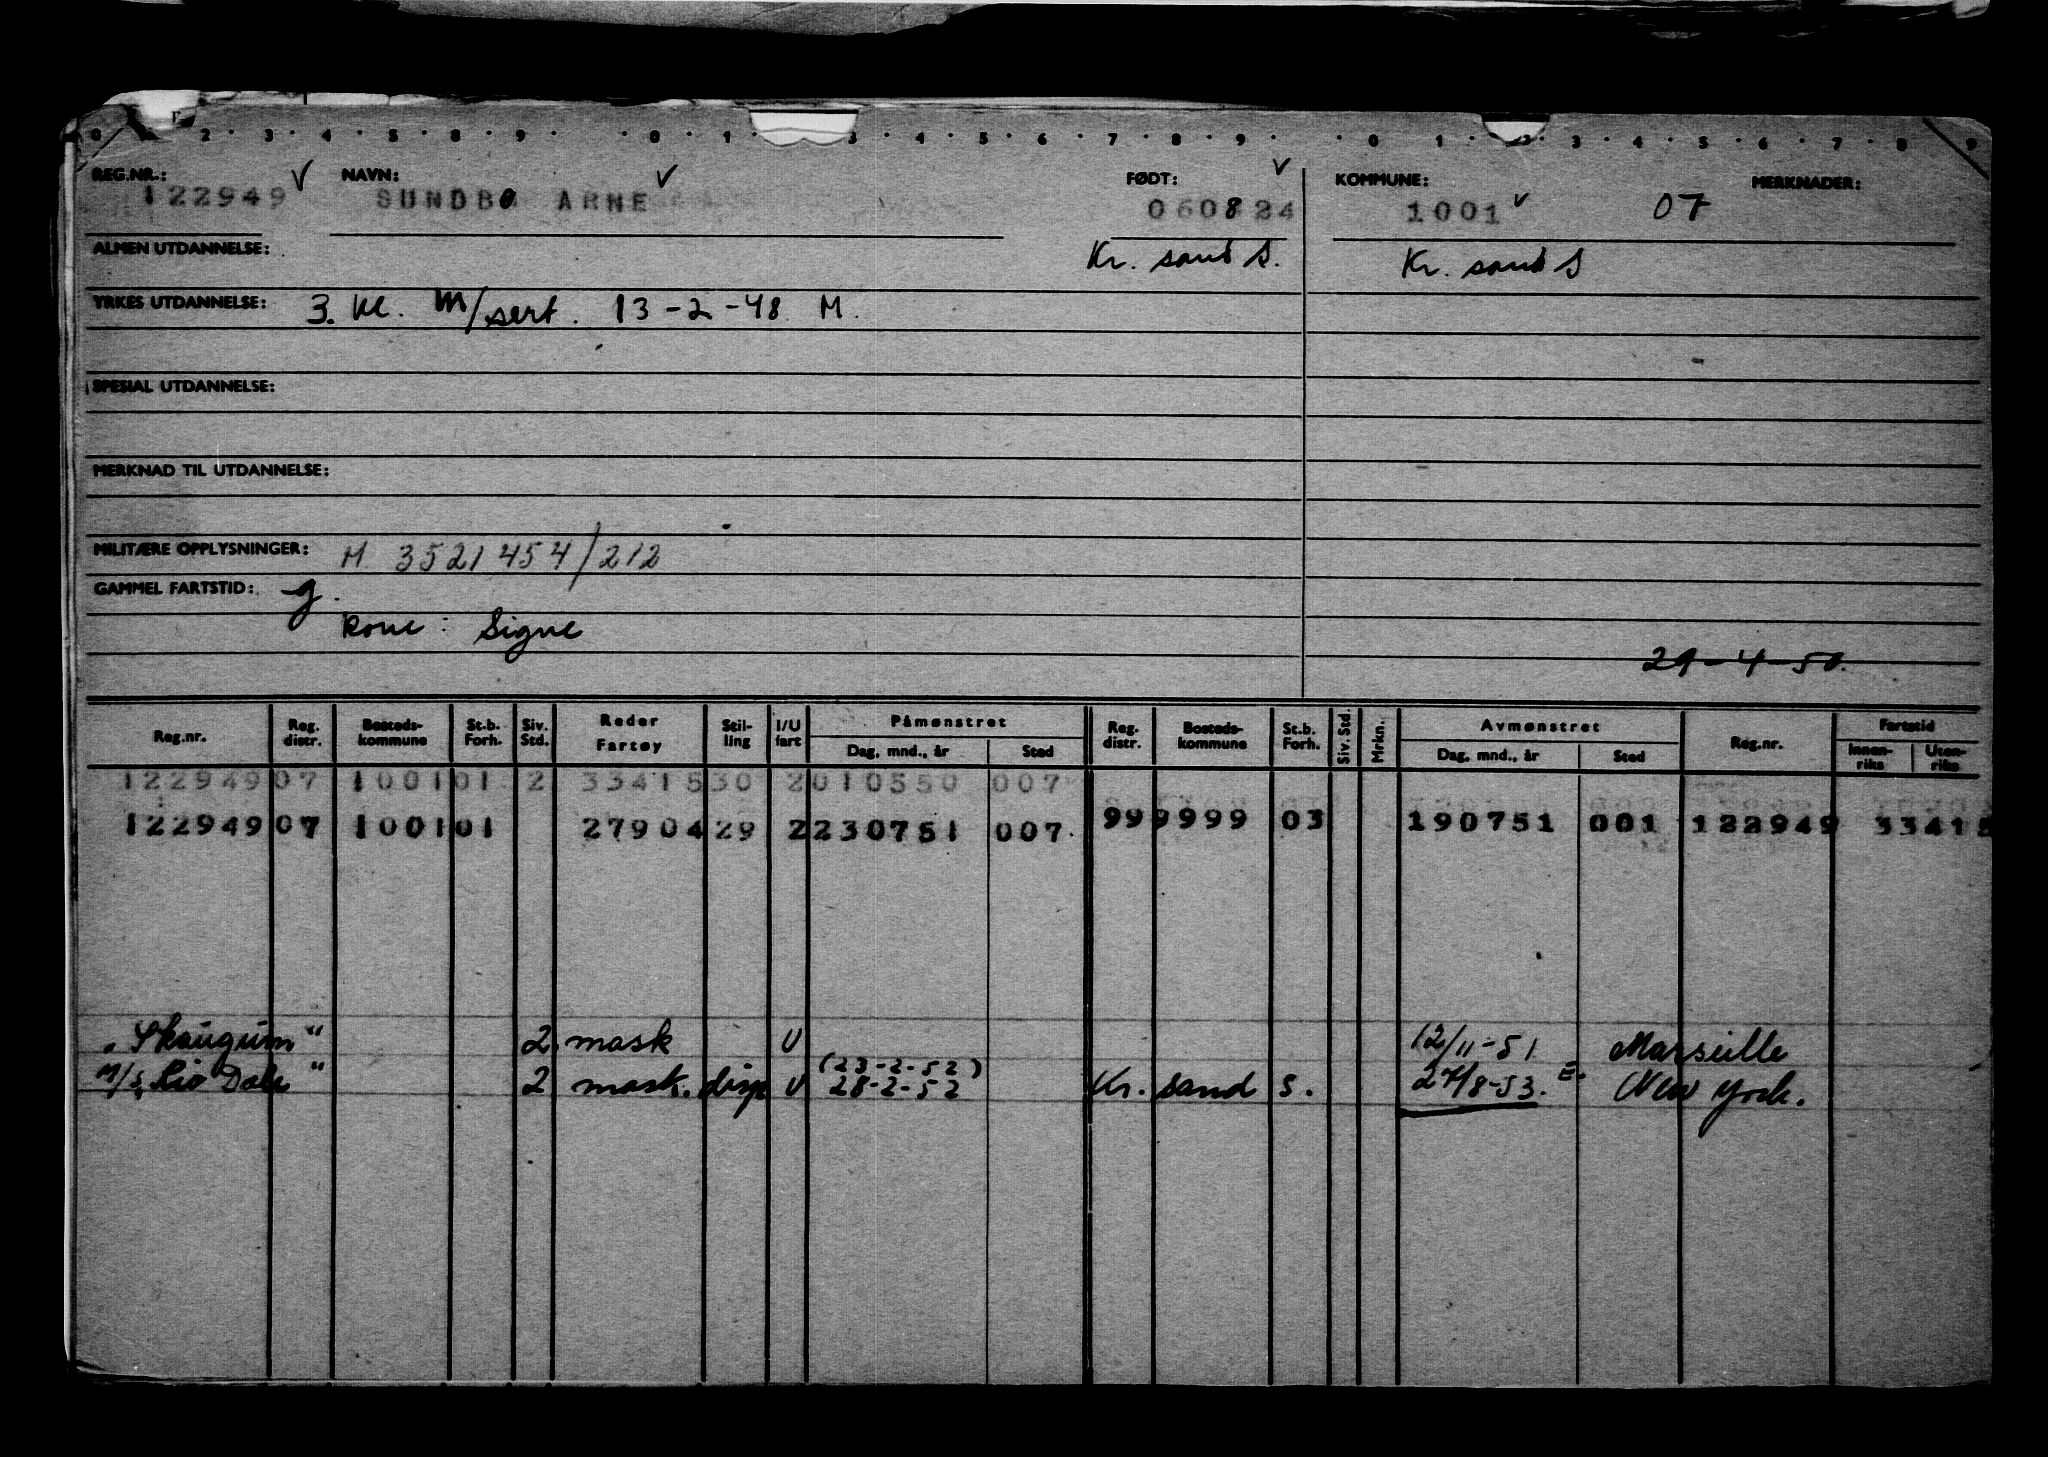 0 2 · 3 · 4 · 5 · 8 · 9 · · 0 · 1 3 · 4 · 5 · 6 · 7 · 8 · 9 · · 0 1 · 2 · 3 · 4 · 5 · 6 · 7 · 8 9
REG.NR.: NAVN: FØDT: KOMMUNE: MERKNADER:
122949 SUNDBØ ARNE 060824 1001 07
ALMEN UTDANNELSE: Kr. sand S. Kr. sand S
YRKES UTDANNELSE: 3. kl. m/sert. 13-2-48 M.
SPESIAL UTDANNELSE:
MERKNAD TIL UTDANNELSE:
MILITÆRE OPPLYSNINGER: M 3521454/212
GAMMEL FARTSTID: g.
kone: Signe
29-4-50.
Reg.nr. Reg. distr. Bosteds-kommune St.b. Forh. Siv. Std. Reder Fartøy Stil-ling I/U fart Påmønstret Dag, mnd., år Sted Reg. distr. Bosteds-kommune St.b. Forh. Siv. Std. Mrkn. Avmønstret Dag, mnd., år Sted Reg.nr. Fartstid Innen-riks Uten-riks
122949 07 1001 01 2 33415 30 2 010550 007
122949 07 1001 01 27904 29 2 230751 007 99 9999 03 190751 001 122949 33415
"Skaugum" 2. mask U 12/11-51 Marseille
(23-2-52)
M/S "Rio Dale" 2 mask. disp U 28-2-52 Kr. sand S. 27/8-53. E. New York.